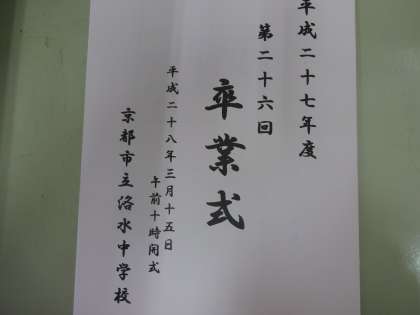 平成二十七年度
第二十六回
卒業式
平成二十八年三月十五日
午前十時開式
京都市立洛水中学校